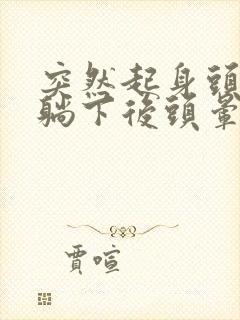 突然起身頭
躺下後頭暈
賈喧